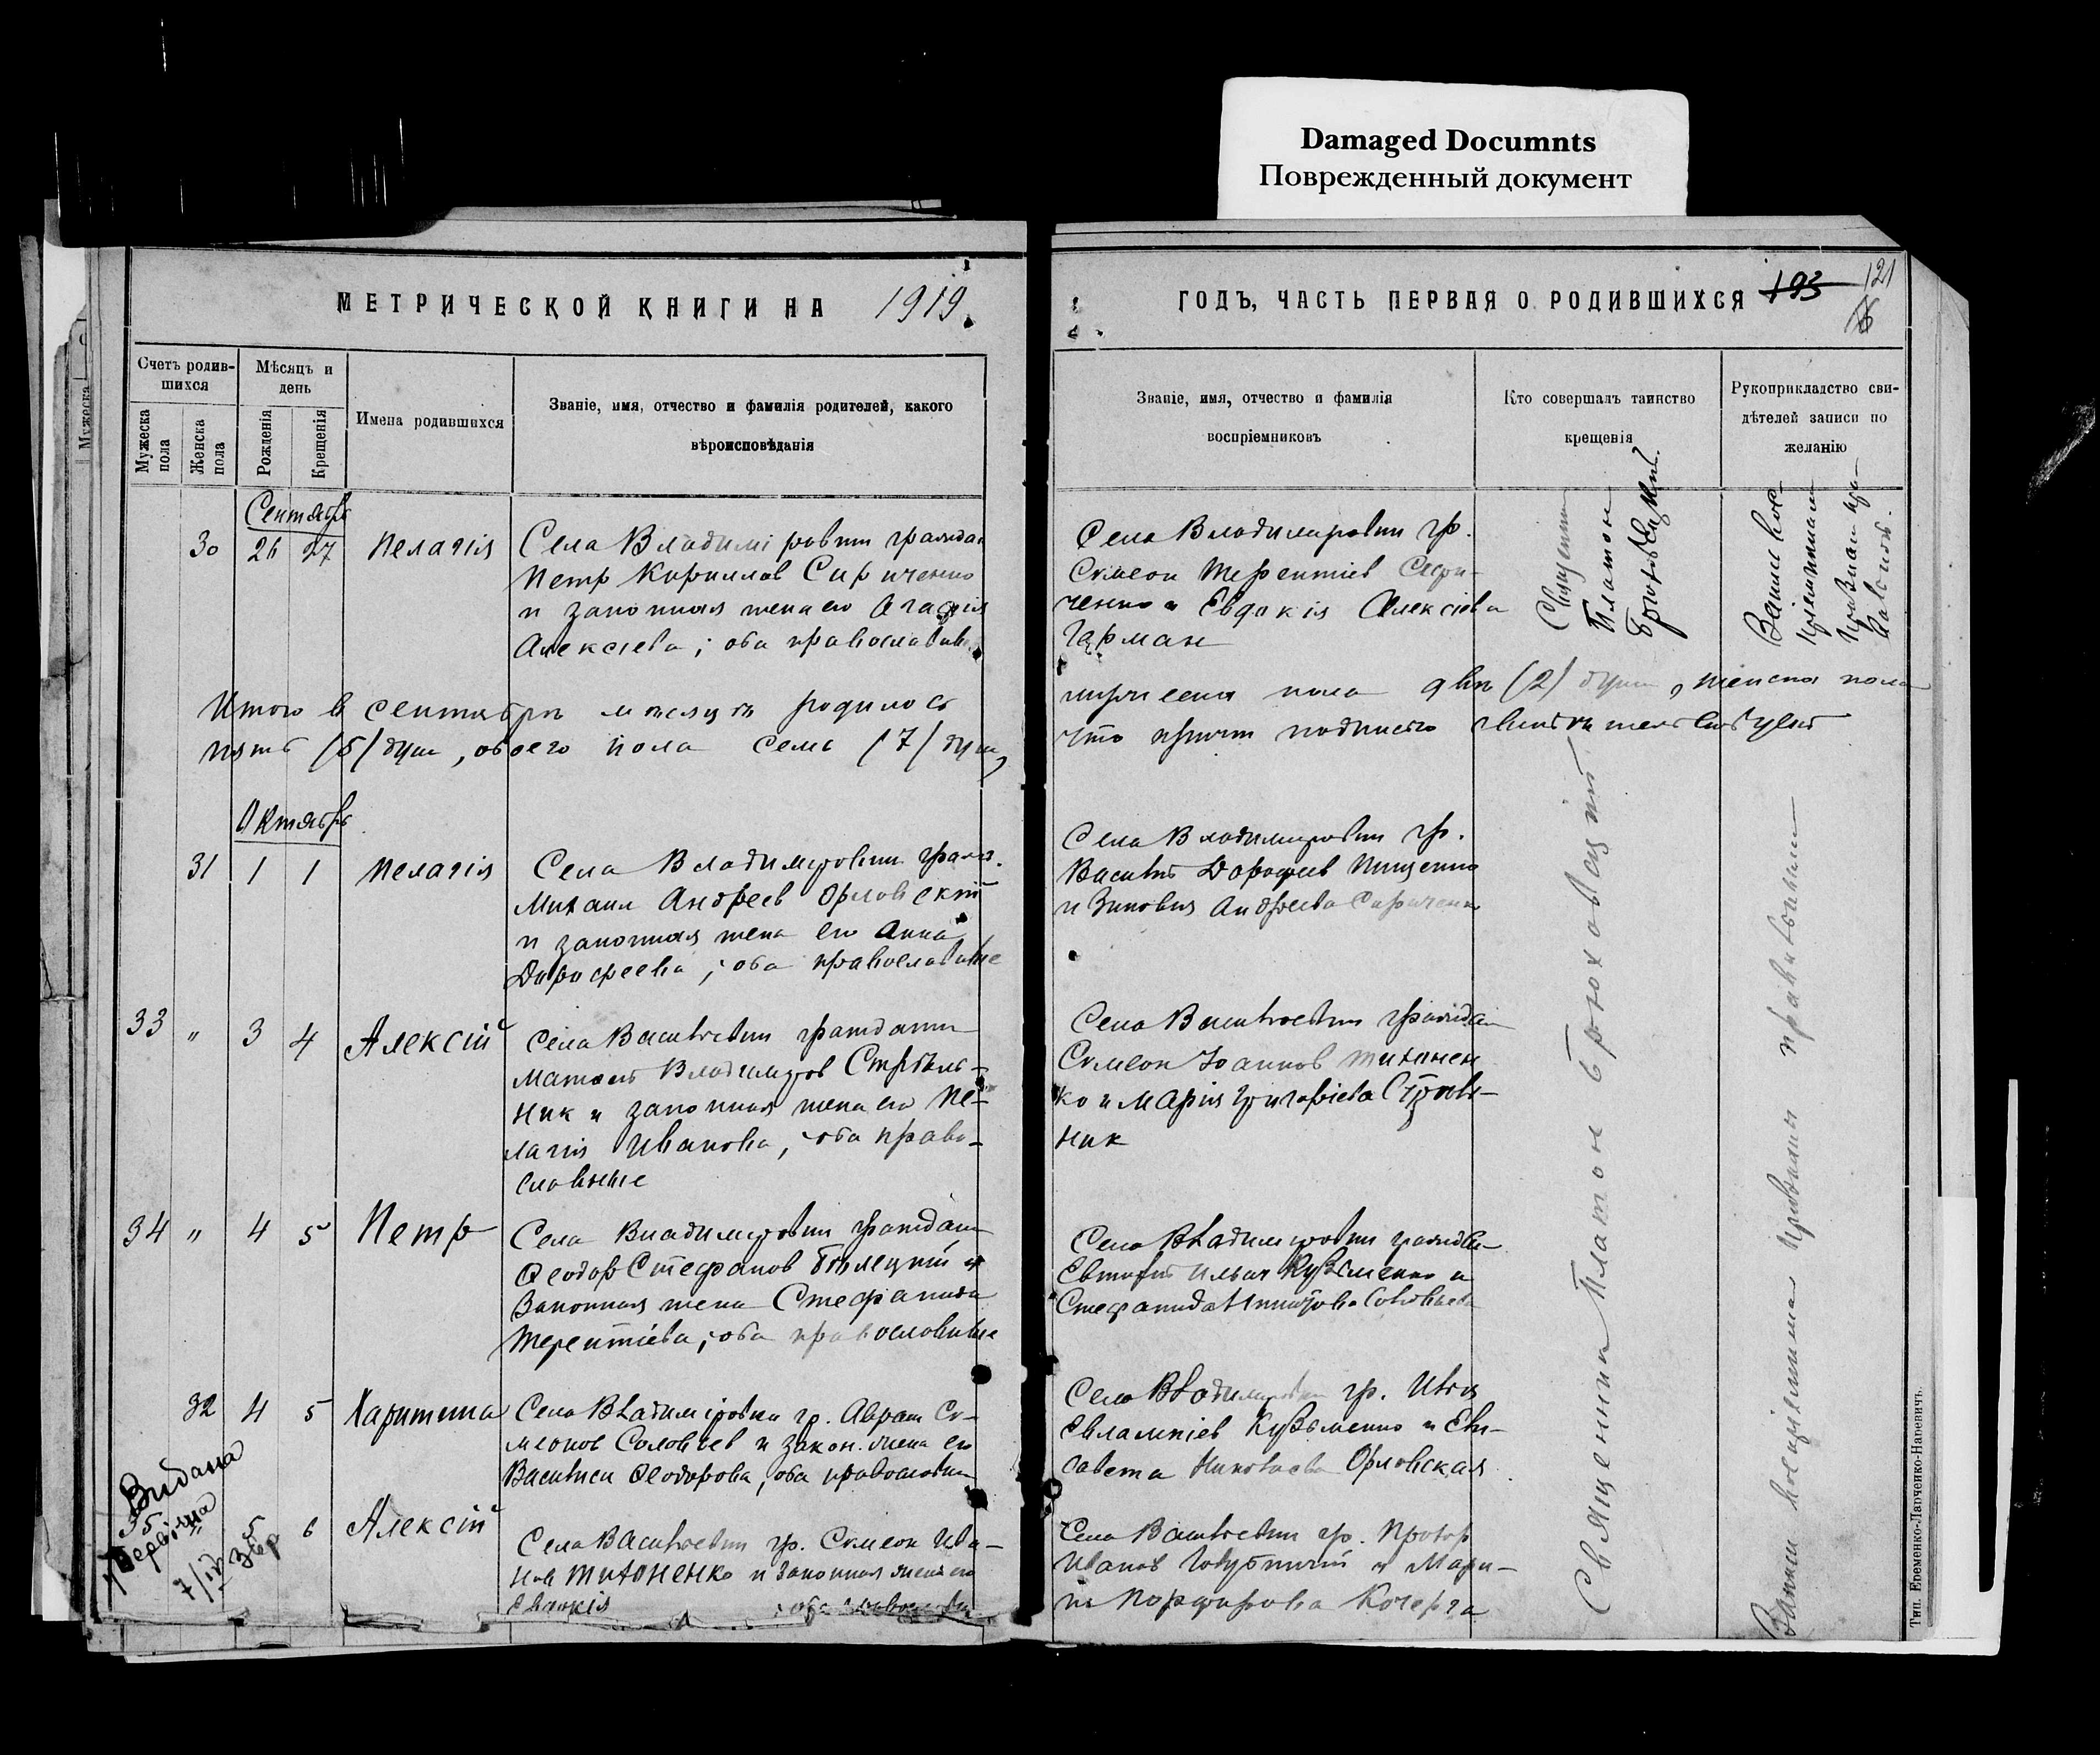 Damaged Documnts
Поврежденный документ
МЕТРИЧЕСКОЙ КНИГИ НА 1919
ГОДЪ, ЧАСТЬ ПЕРВАЯ О РОДИВШИХСЯ 193 121
Счетъ родив-
шихся
Мужеска пола
Женска пола
Мѣсяцъ и
день
Рожденія
Крещенія
Имена родившихся
Званіе, имя, отчество и фамилія родителей, какого
вѣроисповѣданія
Званіе, имя, отчество и фамилія
воспріемниковъ
Кто совершалъ таинство
крещенія
Рукоприкладство сви-
дѣтелей записи по
желанію
Мужеска
Сентябрь
30 26 27 Пелагія
Села Владиміровки граждан
Петр Кириллов Сириченко
и законная жена его Агафія
Алексіева; оба православные
Села Владимировки гр.
Симеон Терентіев Сири-
ченко и Евдокія Алексіева
Гарман
Священник
Платон
Брюховецкий
Итого в сентябре месяце родилось
мужеска пола две (2) души, женска пола
пять (5) душ, обоего пола семь (7) душ,
что причт подписью свидетельствует
Октябрь
31 1 1 Пелагія
Села Владимировки гражд.
Михаил Андреев Орловскій
и законная жена его Анна
Дорофеева; оба православные
Села Владимировки гр.
Василий Дорофеев Пищенко
и Зиновия Андреева Сириченко
33 " 3 4 Алексій
Села Васильевки граждан
Матвей Владимиров Стрель-
ник и законная жена его Пе-
лагія Иванова, оба право-
славные
Села Васильевки граждан
Симеон Іоаннов Тихонен
ко и Марія Григоріева Стрель-
ник
34 " 4 5 Петр
Села Владимировки граждан
Феодор Стефанов Билецкий и
Законная жена Стефанида
Терентіева; оба православные
Села Владимировки граждан
Евтифий Ильич Кузьменко и
Стефанида Соловьева
32 4 5 Харитина
Села Владиміровки гр. Аврам Си-
меонов Соловьев и закон. жена его
Василиса Феодорова, оба православны
Села Владимировки гр. Илья
Евлампіев Кузьменко и Ели-
савета Николаева Орловская
35 " 5 6 Алексій
Села Васильевки гр. Симеон Ива-
нов Тихоненко и законная жена его
Евдокія оба
Села Васильевки гр.
Иванов Голубничий и Мари-
я Порфирова Кочерга
Видана
7/IV 36р
Священник Платон Брюховецкий
Запись воспріемника правильным
Тип. Еременко-Ларченко-Наревичъ.